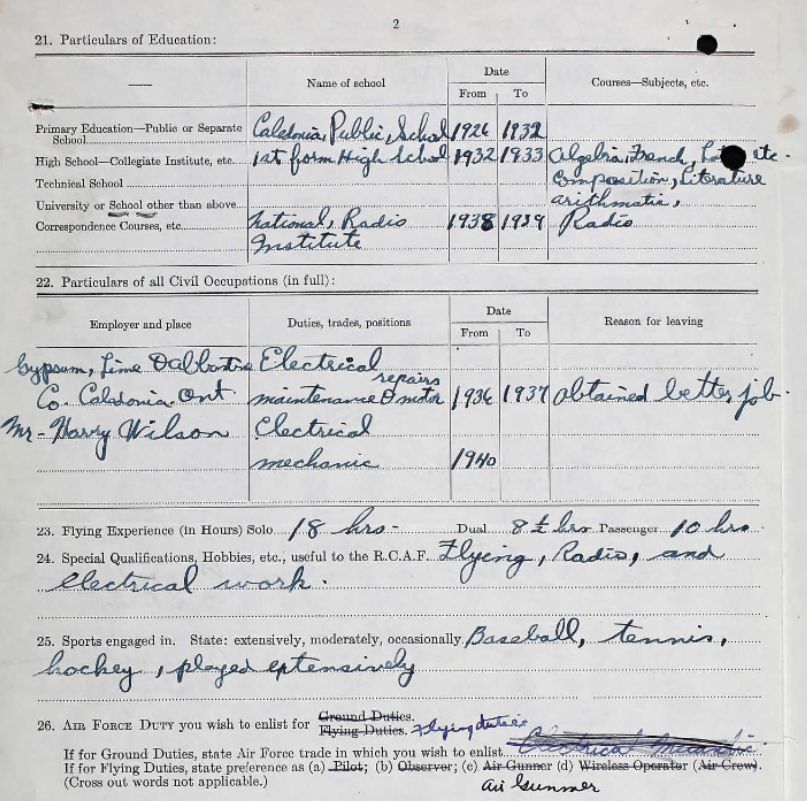 2
21. Particulars of Education:
Name of school
Date
From To
Courses—Subjects, etc.
Primary Education—Public or Separate School Caledonia, Public, School 1926 1932
High School—Collegiate Institute, etc. 1st form High School 1932 1933 Algebra, French, etc.
Technical School Composition, Literature
University or School other than above arithmatic,
Correspondence Courses, etc. National, Radio 1938 1939 Radio
Institute
22. Particulars of all Civil Occupations (in full):
Employer and place
Duties, trades, positions
Date
From To
Reason for leaving
Gypsum, Lime Electrical
repairs
Co. Caledonia. Ont. maintenance & motor 1936 1937 obtained better job.
Mr- Harry Wilson Electrical
mechanic 1940
23. Flying Experience (in Hours) Solo 18 hrs- Dual 8½ hrs Passenger 10 hrs
24. Special Qualifications, Hobbies, etc., useful to the R.C.A.F. Flyeing, Radio, and
electrical work.
25. Sports engaged in. State: extensively, moderately, occasionally Baseball, tennis,
hockey, played extensively
26. AIR FORCE DUTY you wish to enlist for Ground Duties.
Flying Duties. Flying duties
If for Ground Duties, state Air Force trade in which you wish to enlist Electrical Mechanic
If for Flying Duties, state preference as (a) Pilot; (b) Observer; (c) Air Gunner (d) Wireless Operator (Air Crew).
(Cross out words not applicable.) Air Gunner